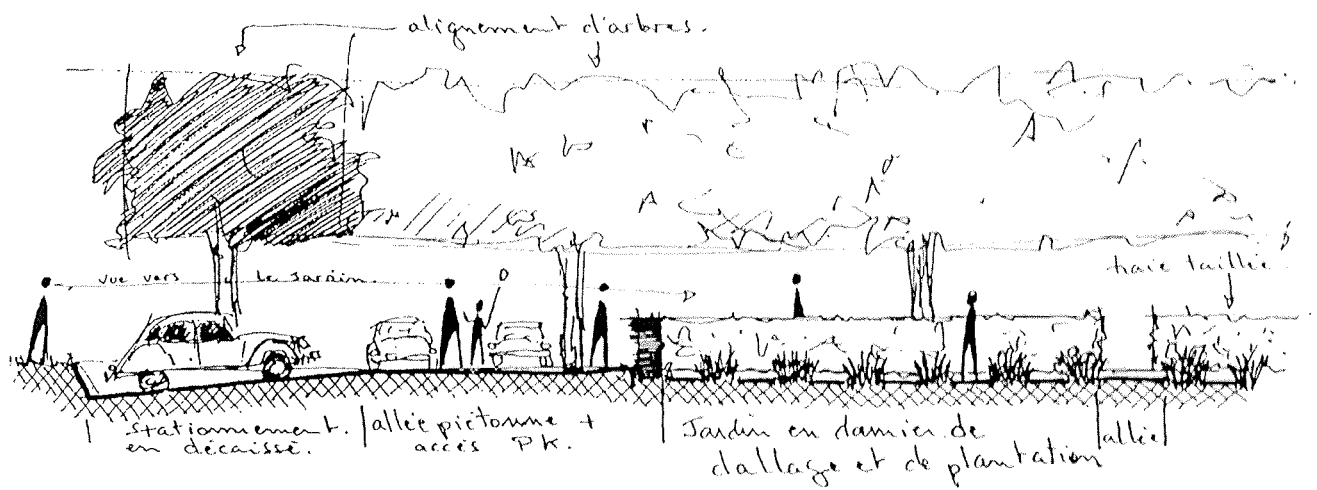 alignement d'arbres.
vue vers le Jardin.
haie taillée
stationnement.
en décaissé.
allée piétonne +
accès PK.
Jardin en damier de
dallage et de plantation
allée